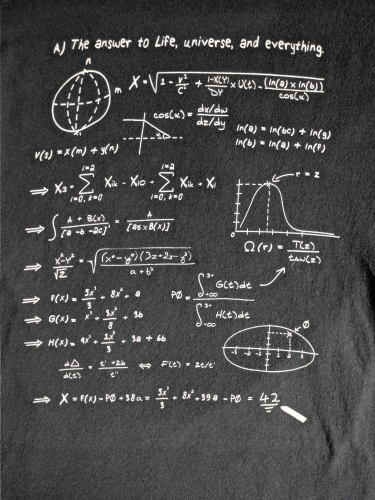 A) The answer to Life, universe, and everything.
n
m
X = √ 1 - v²/c² + 1-X(y)/DY × U(t) - (ln(a) × ln(b))/cos(x)
cos(x) = dx/dw / dz/dy
ln(a) = ln(bc) + ln(g)
ln(b) = ln(a) + ln(f)
V(s) = X(m) + y(n)
⇒ X₃ = i=2 Σ i=0, k=0 Xik - X10 = i=2 Σ i=0, k=0 Xik + X1
r = z
⇒ ∫ A + B(x) / [a - b - 2c]' = A / [a6 × B(x)]
Ω(r) = T(z) / tAN(z)
⇒ X²-Y² / √2 = √ (x³ - y³)(3z + 2x - y³) / a + b²
⇒ P(x) = 3x³/3 + 8x² + a
PØ = ∫ 3π -∞ G(t)dt / ∫ 3π -∞ H(t)dt
⇒ G(x) = x³ + 3x²/8 + 3b
⇒ H(x) = 4x² + 2x³/3 + 3a + 6b
Ø
dΔ/d(t) = t' + 2b / t'' ⇔ F(t) = 2t/t'
⇒ X = P(x) - PØ + 38a = 3x³/3 + 8x² + 39a - PØ = 42